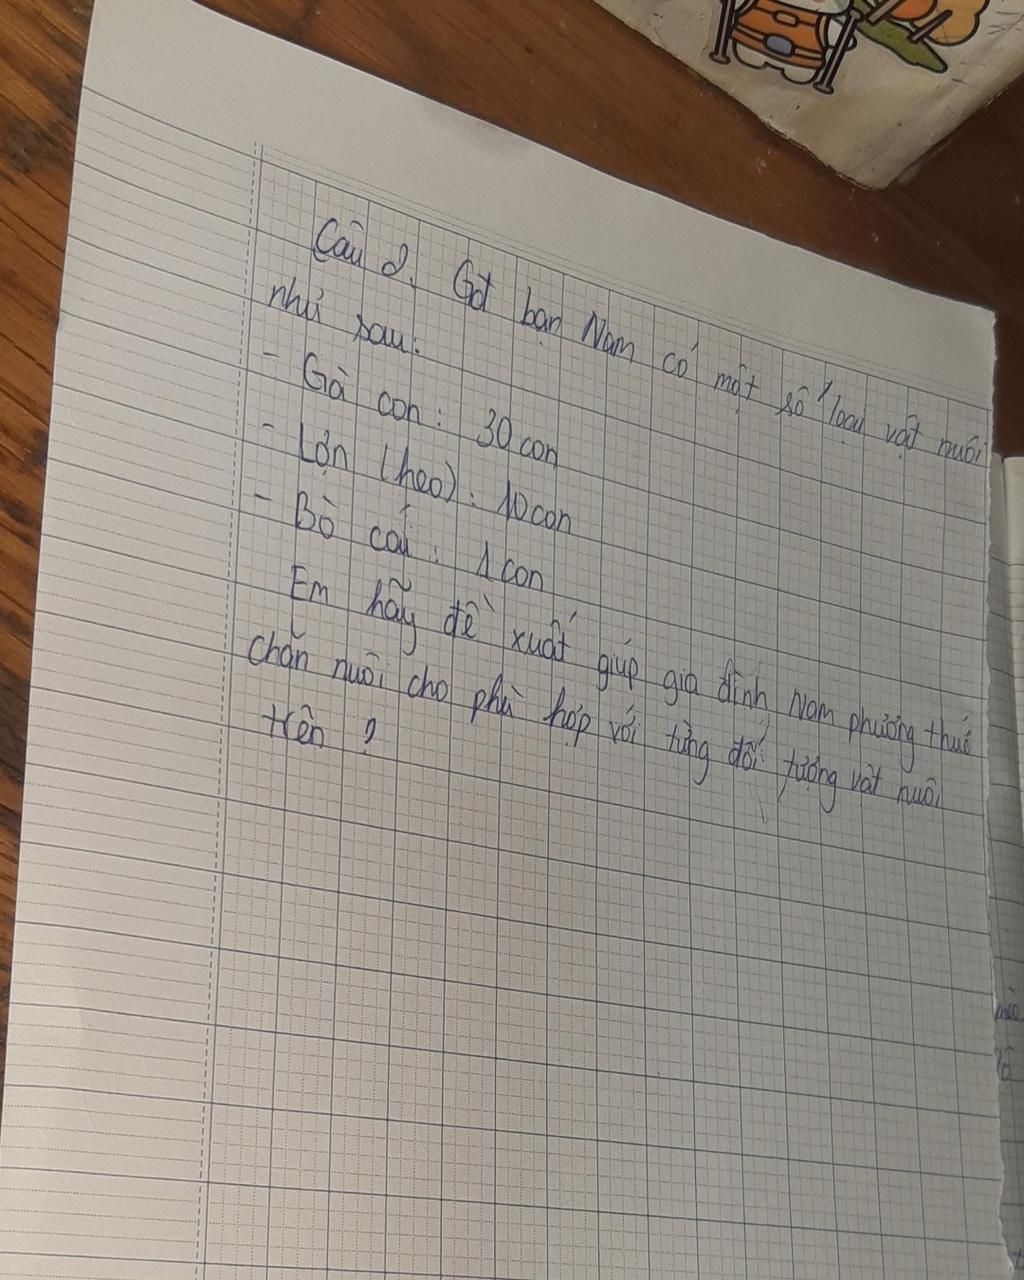 Câu 2. Gđ bạn Nam có một số loại vật nuôi
như sau:
- Gà con: 30 con
- Lợn (heo): 10 con
- Bò cái: 1 con
Em hãy đề xuất giúp gia đình Nam phương thức
chăn nuôi cho phù hợp với từng đối tượng vật nuôi
trên ?